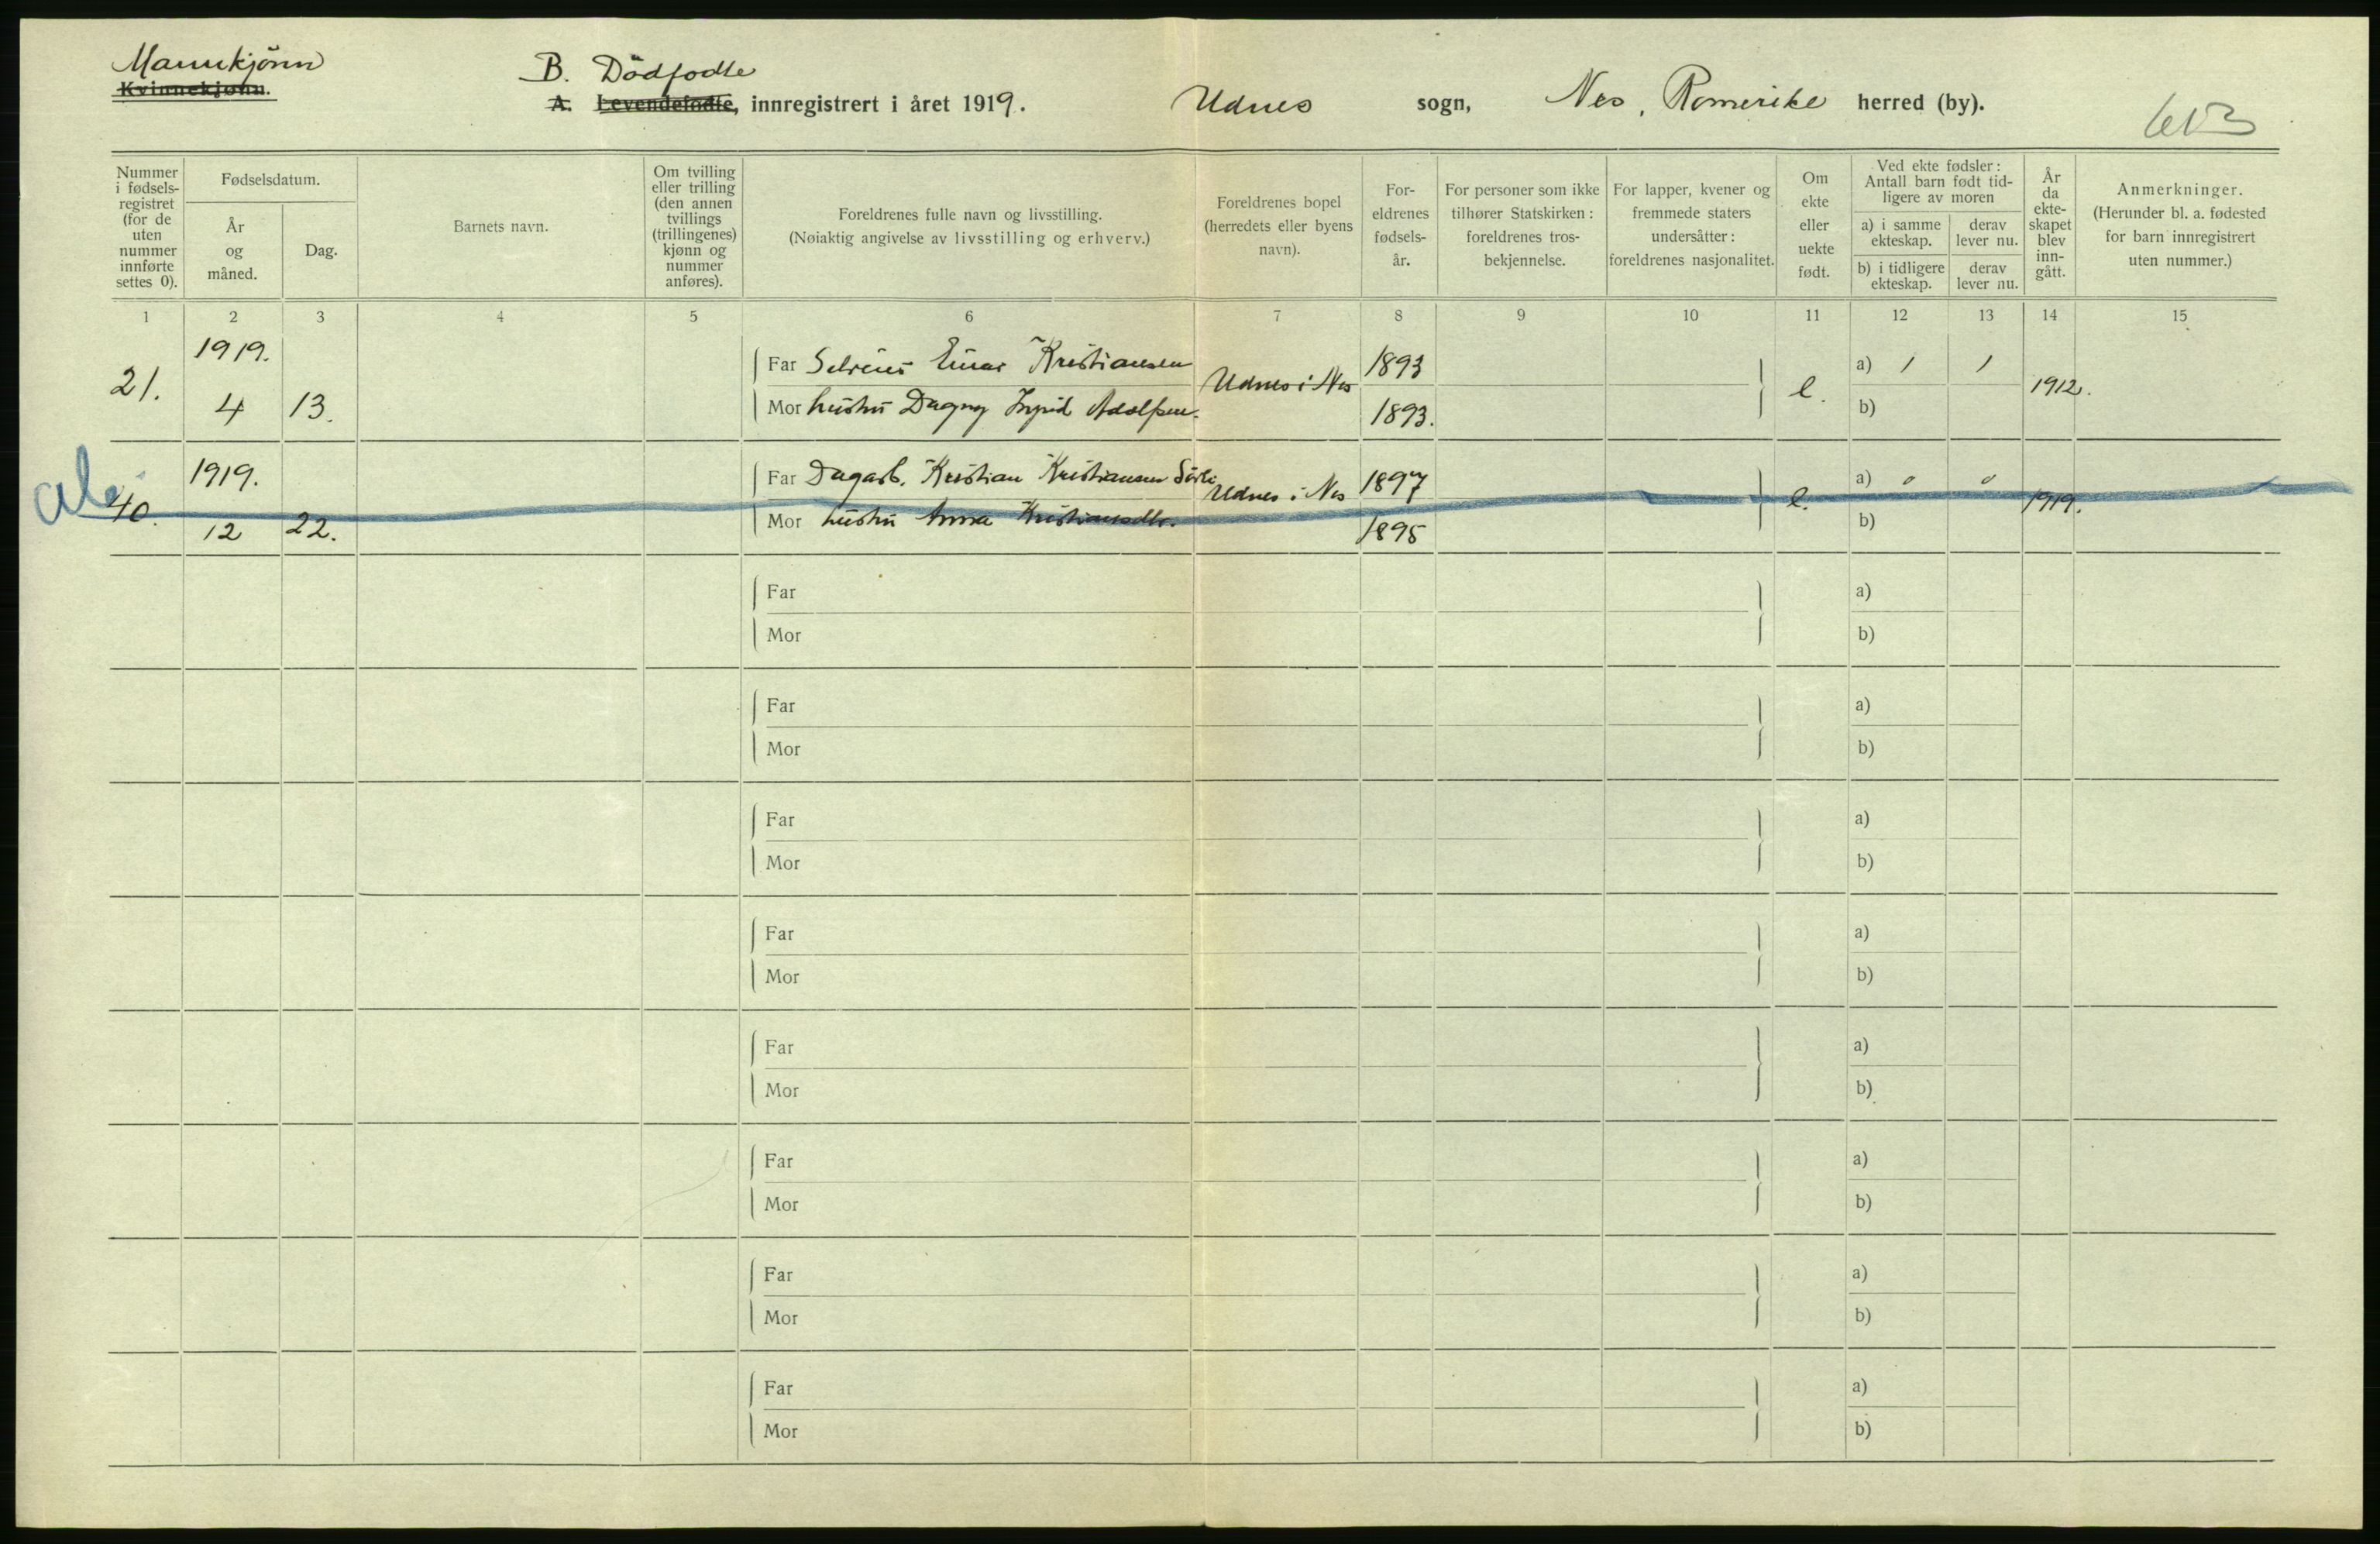 Mannkjønn
Kvinnekjønn.
B. Dödfödte
A. Levendefødte, innregistrert i året 1919. Udnes sogn, Nes, Romerike herred (by).
613
Nummer i fødsels-registret (for de uten nummer innførte settes 0).
Fødselsdatum.
År og måned.
Dag.
Barnets navn.
Om tvilling eller trilling (den annen tvillings (trillingenes) kjønn og nummer anføres).
Foreldrenes fulle navn og livsstilling.
(Nøiaktig angivelse av livsstilling og erhverv.)
Foreldrenes bopel (herredets eller byens navn).
For-eldrenes fødsels-år.
For personer som ikke tilhører Statskirken: foreldrenes tros-bekjennelse.
For lapper, kvener og fremmede staters undersåtter: foreldrenes nasjonalitet.
Om ekte eller uekte født.
Ved ekte fødsler: Antall barn født tid-ligere av moren
a) i samme ekteskap.
derav lever nu.
b) i tidligere ekteskap.
derav lever nu.
År da ekte-skapet blev inn-gått.
Anmerkninger.
(Herunder bl. a. fødested for barn innregistrert uten nummer.)
1 2 3 4 5 6 7 8 9 10 11 12 13 14 15
21. 1919. 4 13.
Far Einar Kristiansen Udnes i Nes 1893 e. a) 1 1 1912.
Mor hustru Dagny Ingrid Adolfsen. 1893. b)
40. 1919. 12 22.
Far Dagarb. Kristian Kristiansen Udnes i Nes 1897 e. a) 0 0 1919.
Mor hustru Anna 1895 b)
Far a)
Mor b)
Far a)
Mor b)
Far a)
Mor b)
Far a)
Mor b)
Far a)
Mor b)
Far a)
Mor b)
Far a)
Mor b)
Far a)
Mor b)